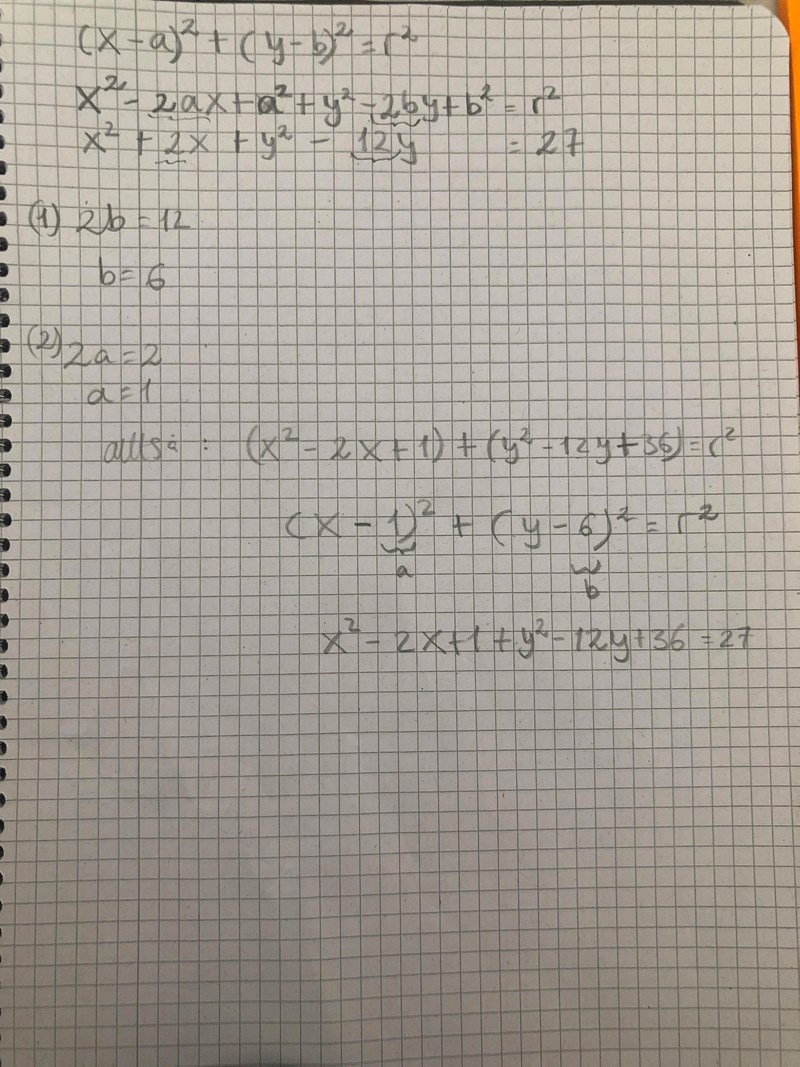 (x-a)² + (y-b)² = r²
x² - 2ax + a² + y² - 2by + b² = r²
x² + 2x + y² - 12y = 27
(1) 2b = 12
b = 6
(2) 2a = 2
a = 1
altså : (x² - 2x + 1) + (y² - 12y + 36) = r²
(x - 1)² + (y - 6)² = r²
a b
x² - 2x + 1 + y² - 12y + 36 = 27